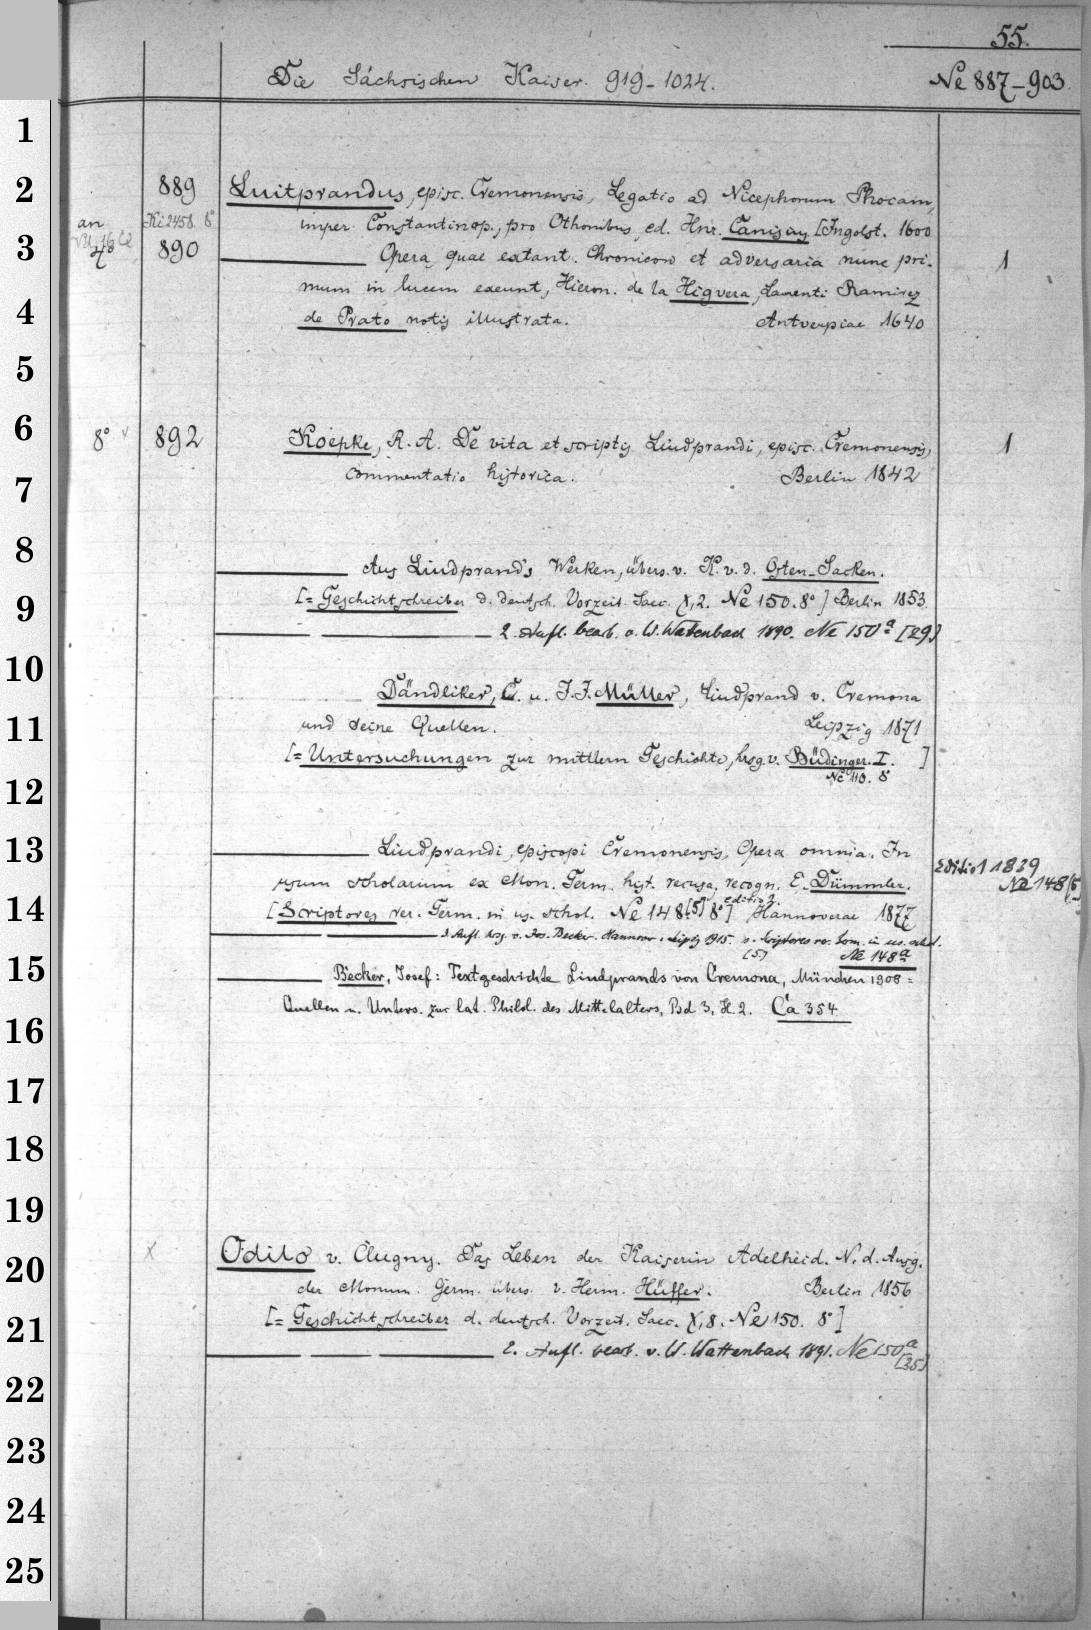 55.
Die Sächsischen Kaiser. 919-1024.
Ne 887-903.
1
2
3
4
5
6
7
8
9
10
11
12
13
14
15
16
17
18
19
20
21
22
23
24
25
889 Luitprandus, episc. Cremonensis, Legatio ad Nicephorum Phocam,
an Ki 2458 8° imper. Constantinop., pro Othonibus, ed. Hnr. Canisay [Ingolst. 1600
4° 890 Opera, quae extant. Chronicon et adversaria nunc pri- 1
mum in lucem exeunt, Hieron. de la Higuera, Lamenti Ramirez
de Prato notis illustrata. Antverpiae 1640
8° v 892 Koepke, R. A. De vita et scriptis Liudprandi, episc. Cremonensis, 1
commentatio historica. Berlin 1842
Aus Liudprand's Werken, übers. v. K. v. d. Osten-Sacken.
[= Geschichtschreiber d. deutsch. Vorzeit. Saec. X, 2. Ne 150. 8°] Berlin 1853
2. Aufl. bearb. v. W. Wattenbach 1890. Ne 150a [29]
Dändliker, C. u. J. J. Müller, Liudprand v. Cremona
und seine Quellen. Leipzig 1871
[= Untersuchungen zur mittlern Geschichte, hrsg. v. Büdinger. I. ]
Ne 110. 8°
Liudprandi, episcopi Cremonensis, Opera omnia. In
Editio 1 1839
Ne 148 [5]
usum scholarum ex Mon. Germ. hist. recusa, recogn. E. Dümmler.
editio 2.
[Scriptores rer. Germ. in us. schol. Ne 148 [5] 8°] Hannoverae 1877
3. Aufl. hrsg. v. Jos. Becker. Hannov. Leipzig 1915. s. Scriptores rer. Germ. in us. schol.
[5] Ne 148a
Becker, Josef: Textgeschichte Liudprands von Cremona, München 1908 =
Quellen u. Unters. zur lat. Philol. des Mittelalters, Bd 3, H. 2. Ca 354.
X Odilo v. Clugny. Das Leben der Kaiserin Adelheid. N. d. Ausg.
der Monum. Germ. übers. v. Herm. Hüffer. Berlin 1856
[= Geschichtschreiber d. deutsch. Vorzeit. Saec. X, 8. Ne 150. 8°]
2. Aufl. bearb. v. W. Wattenbach 1891. Ne 150a
[35]